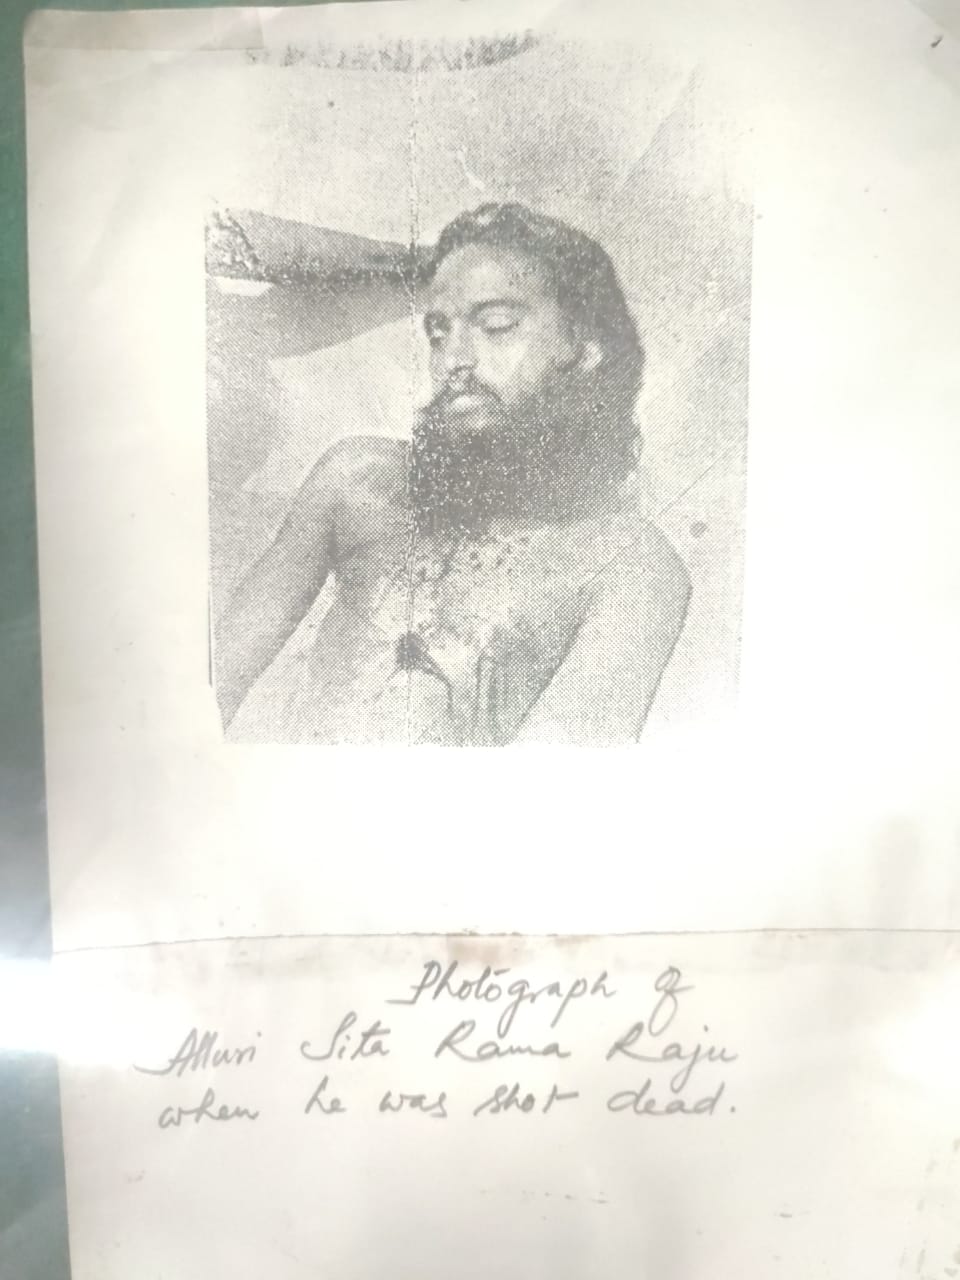 Photograph of
Alluri Sita Rama Raju
when he was shot dead.